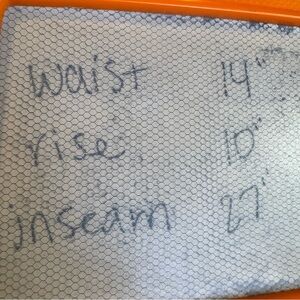 waist 14"
rise 10"
inseam 27"